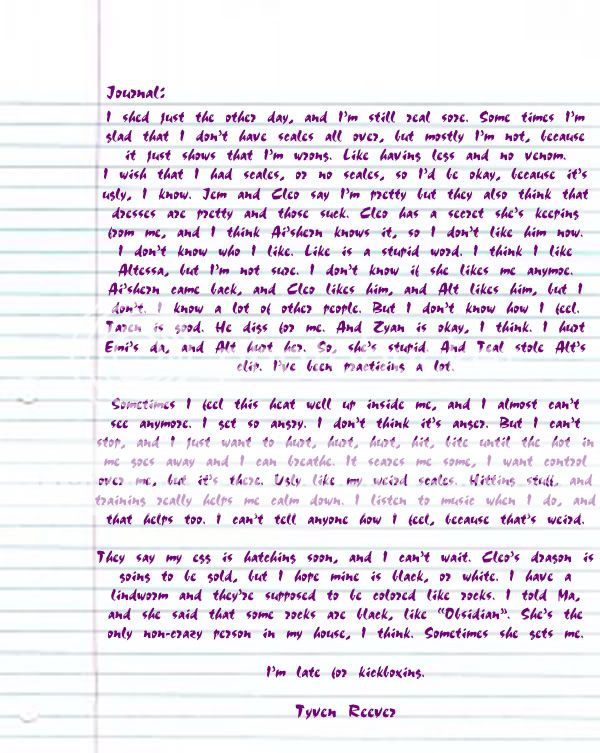 Journal:
I shed just the other day, and I'm still real sore. Some times I'm
glad that I don't have scales all over, but mostly I'm not, because
it just shows that I'm wrong. Like having legs and no venom.
I wish that I had scales, or no scales, so I'd be okay, because it's
ugly, I know. Jem and Cleo say I'm pretty but they also think that
dresses are pretty and those suck. Cleo has a secret she's keeping
from me, and I think Ai'shern knows it, so I don't like him now.
I don't know who I like. Like is a stupid word. I think I like
Altessa, but I'm not sure. I don't know if she likes me anymoe.
Ai'shern came back, and Cleo likes him, and Alt likes him, but I
don't. I know a lot of other people. But I don't know how I feel.
Taren is good. He digs for me. And Zyan is okay, I think. I hurt
Emi's da, and Alt hurt her. So, she's stupid. And Teal stole Alt's
clip. I've been practicing a lot.
Sometimes I feel this heat well up inside me, and I almost can't
see anymore. I get so angry. I don't think it's anger. But I can't
stop, and I just want to hurt, hurt, hurt, hit, bite until the hot in
me goes away and I can breathe. It scares me some, I want control
over me, but it's there. Ugly like my weird scales. Hitting stuff, and
training really helps me calm down. I listen to music when I do, and
that helps too. I can't tell anyone how I feel, because that's weird.
They say my egg is hatching soon, and I can't wait. Cleo's dragon is
going to be gold, but I hope mine is black, or white. I have a
lindworm and they're supposed to be colored like rocks. I told Ma,
and she said that some rocks are black, like "Obsidian". She's the
only non-crazy person in my house, I think. Sometimes she gets me.
I'm late for kickboxing.
Tyven Reever